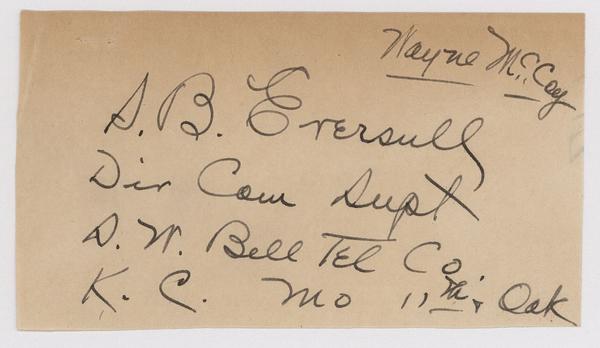 Wayne McCoy
S. B. Eversull
Div Com Supt
S. W. Bell Tel Co
K. C. Mo 11th & Oak